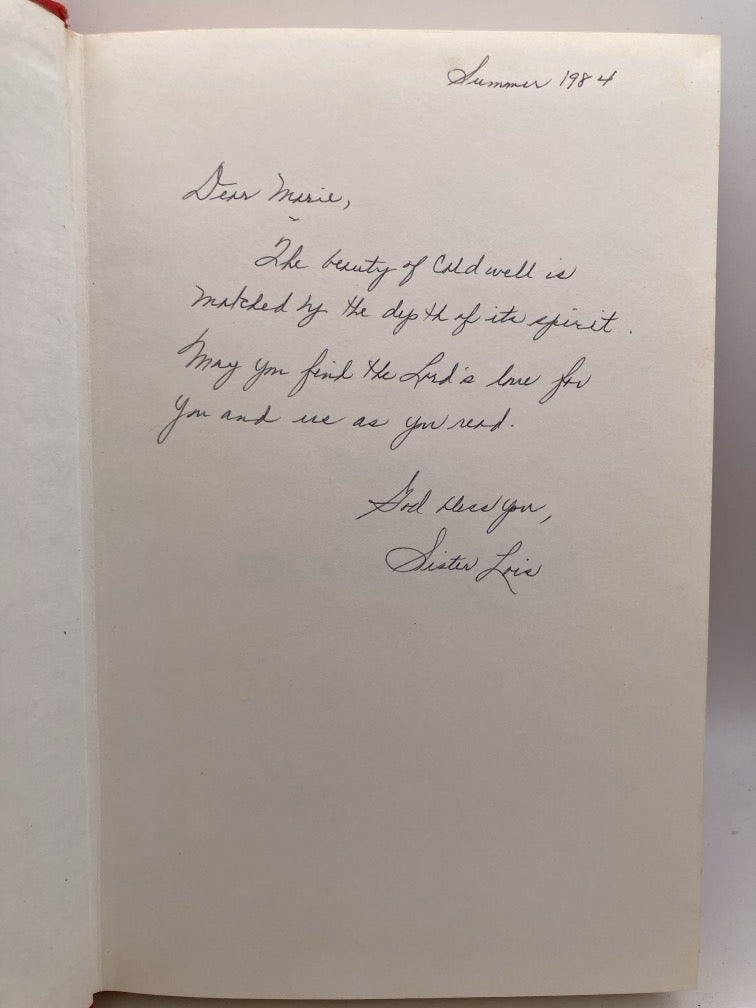 Summer 1984
Dear Marie,
The beauty of Caldwell is
matched by the depth of its spirit.
May you find the Lord's love for
you and us as you read.
God bless you,
Sister Lois